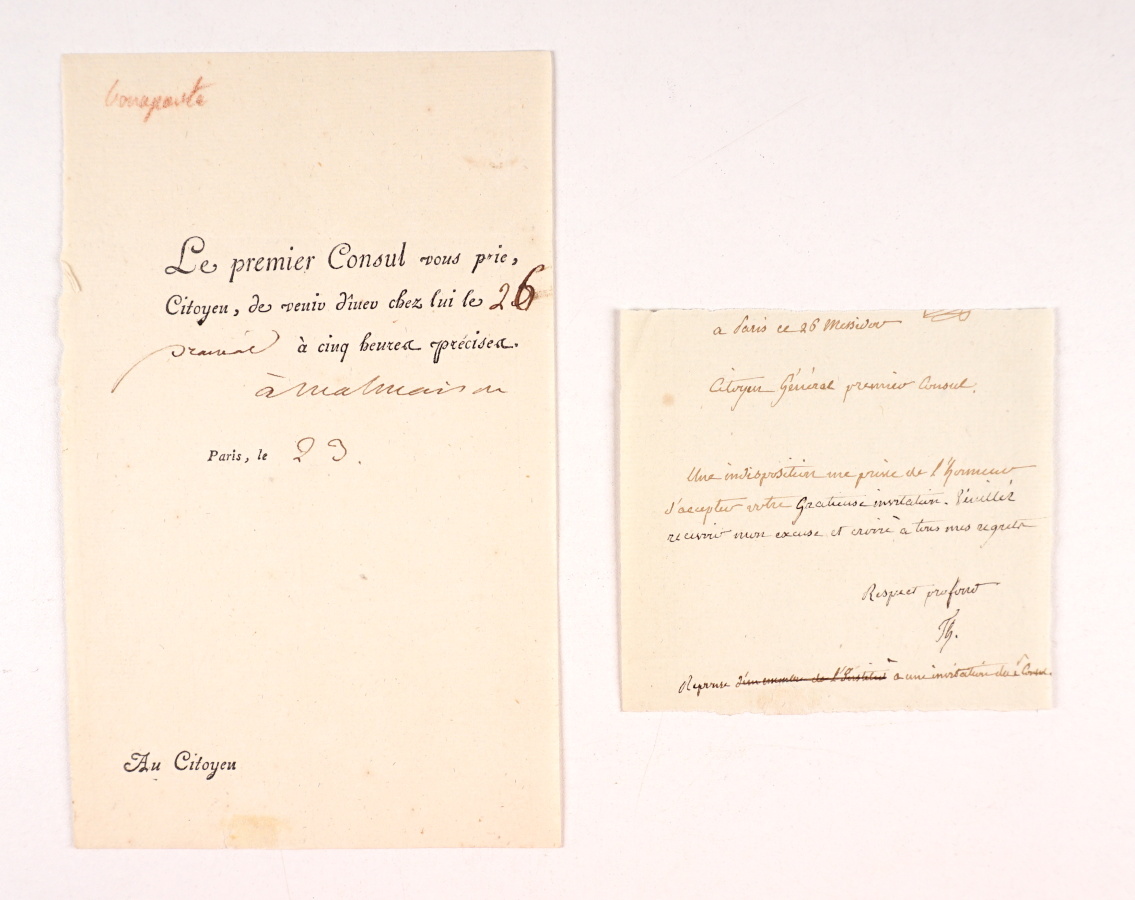 bonaparte
Le premier Consul vous prie,
Citoyen, de venir dîner chez lui le 26
prairial à cinq heures précises.
à malmaison
Paris, le 23.
Au Citoyen
a Paris ce 26 Messidor
Citoyen Général premier Consul,
Une indisposition me prive de l'honneur
d'accepter votre Gratieuse invitation. Veuillez
recevoir mon excuse et croire à tous mes regrets
Respect profond
Th.
Reponse d'un membre de l'Institut à une invitation du 1r Consul.